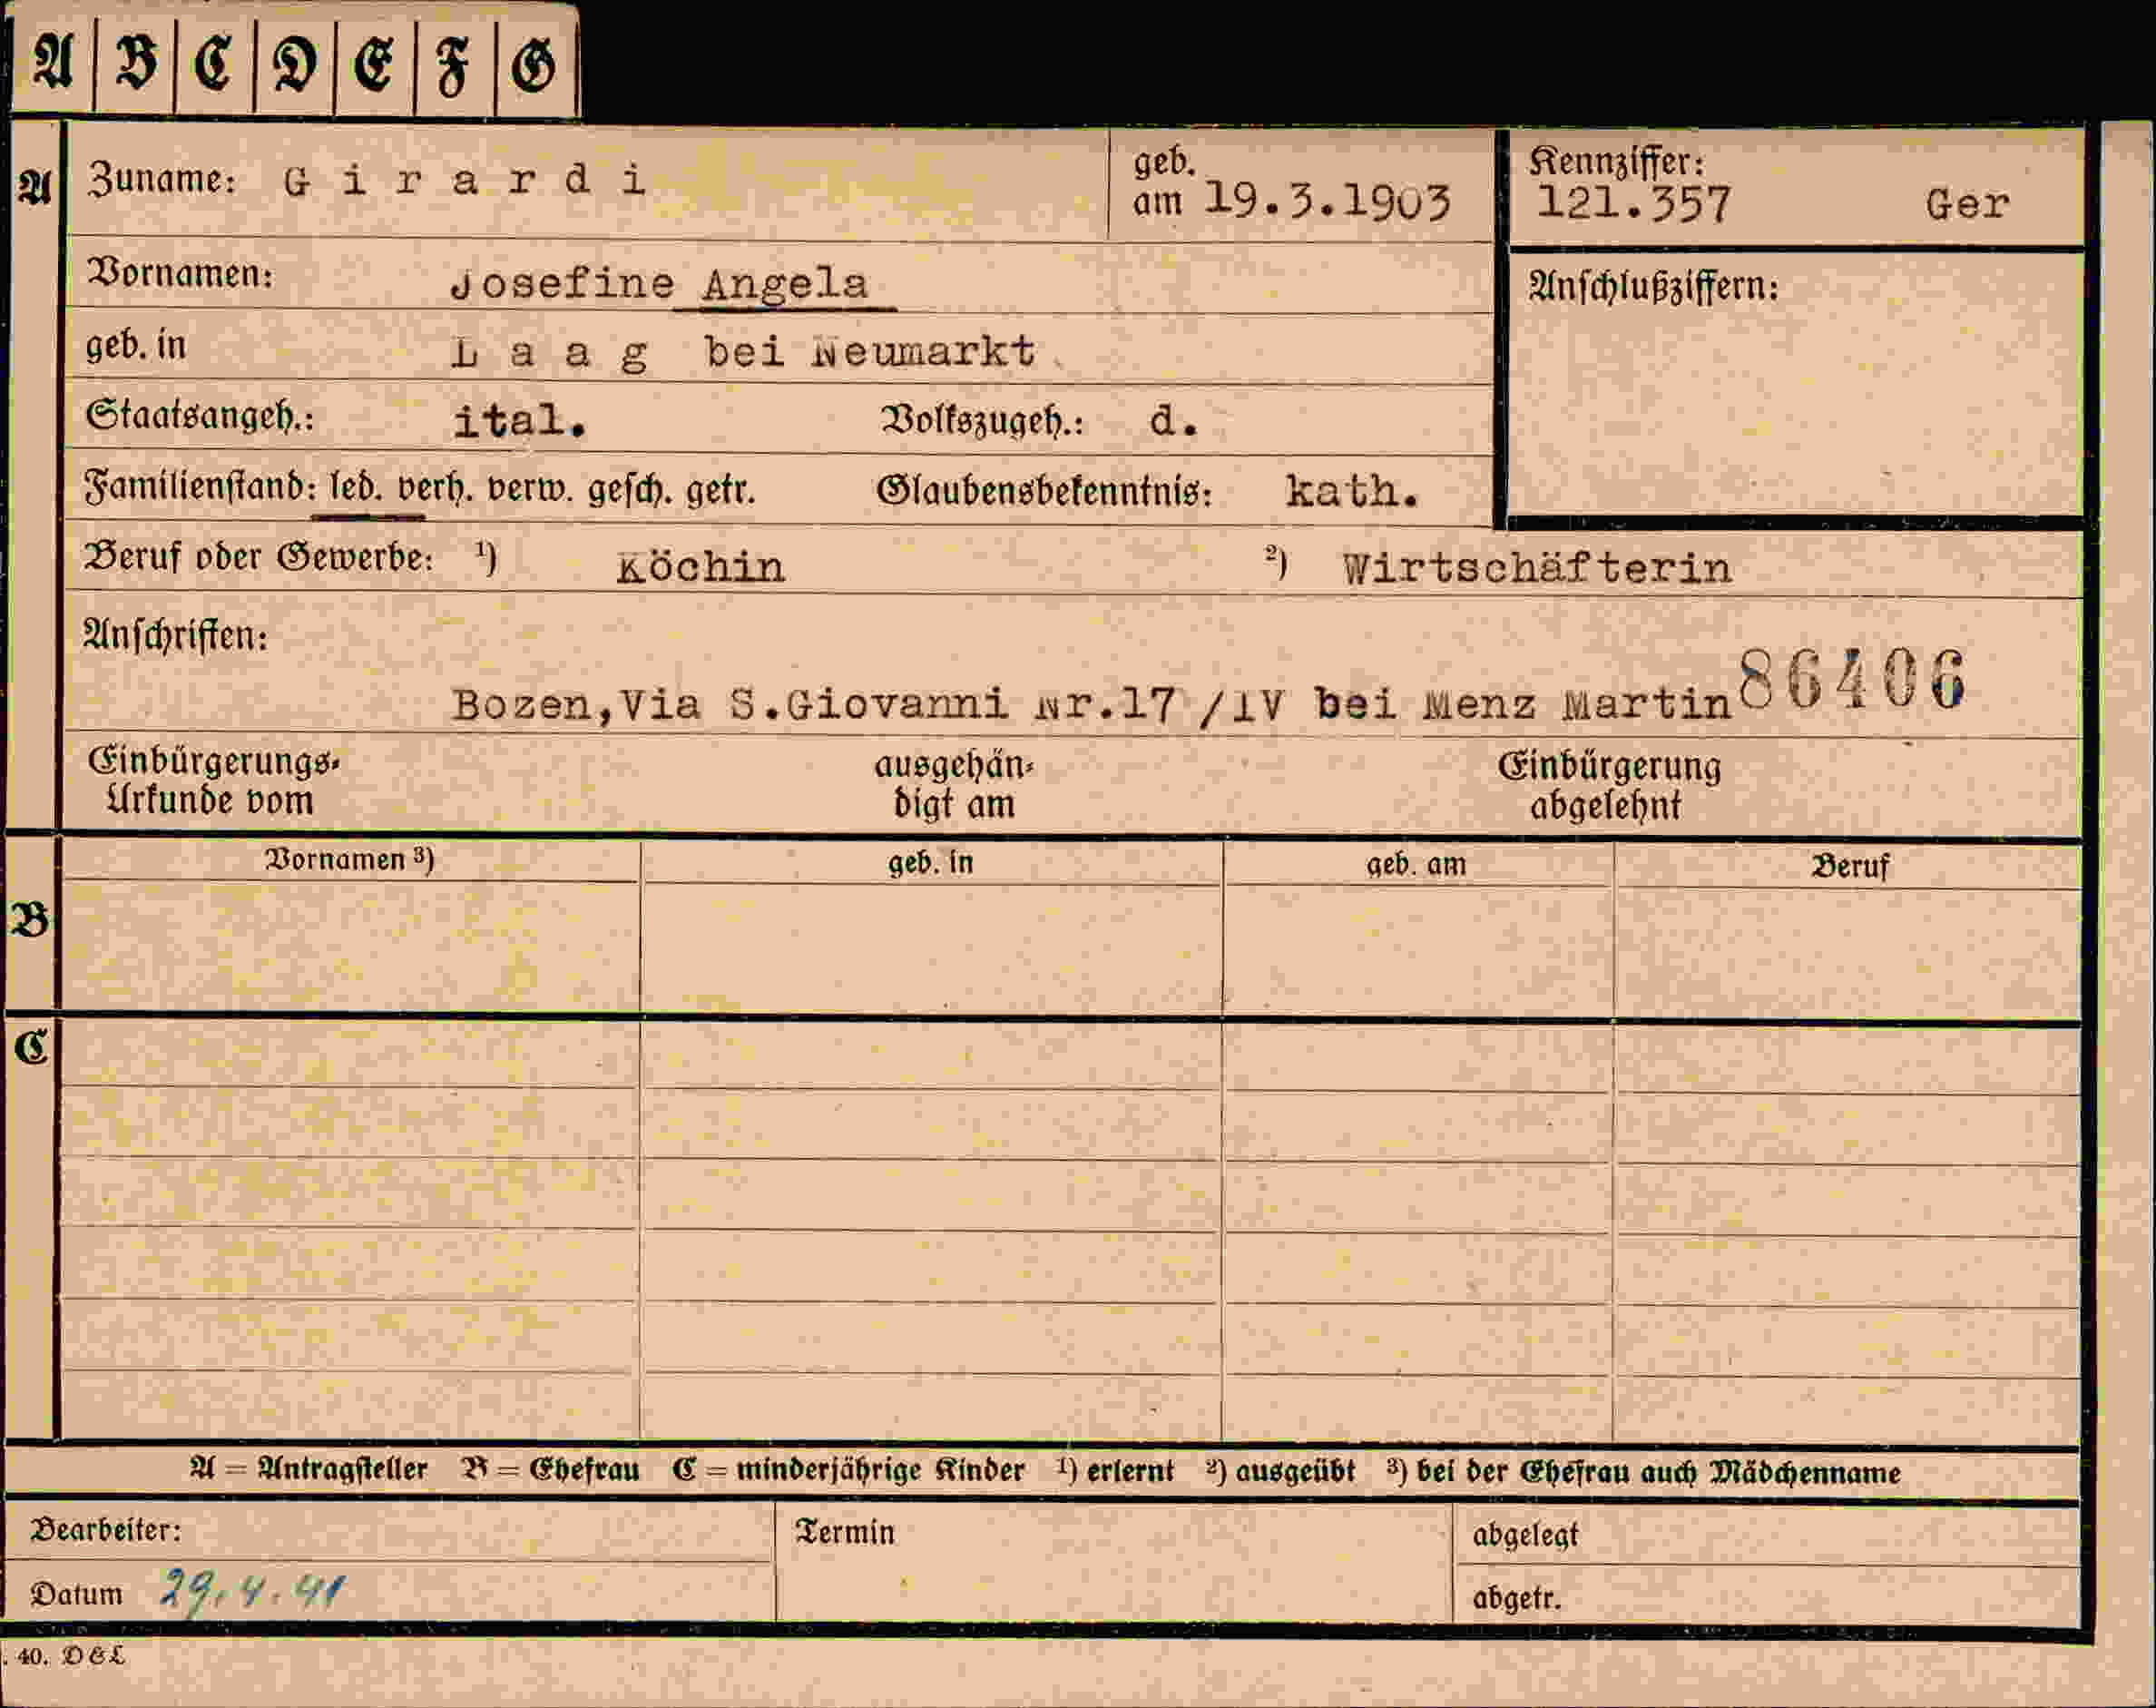 A B C D E F G
A Zuname: G i r a r d i geb. am 19.3.1903 Kennziffer: 121.357 Ger
Vornamen: Josefine Angela Anschlußziffern:
geb. in L a a g bei Neumarkt
Staatsangeh.: ital. Volkszugeh.: d.
Familienstand: led. verh. verw. gesch. getr. Glaubensbekenntnis: kath.
Beruf oder Gewerbe: ¹) Köchin ²) Wirtschäfterin
Anschriften:
Bozen,Via S.Giovanni Nr.17 /IV bei Menz Martin 86406
Einbürgerungs- ausgehän- Einbürgerung
Urkunde vom digt am abgelehnt
Vornamen ³) geb. in geb. am Beruf
B
C
A = Antragsteller B = Ehefrau C = minderjährige Kinder ¹) erlernt ²) ausgeübt ³) bei der Ehefrau auch Mädchenname
Bearbeiter: Termin abgelegt
Datum 29.4.41 abgetr.
. 40. D & L